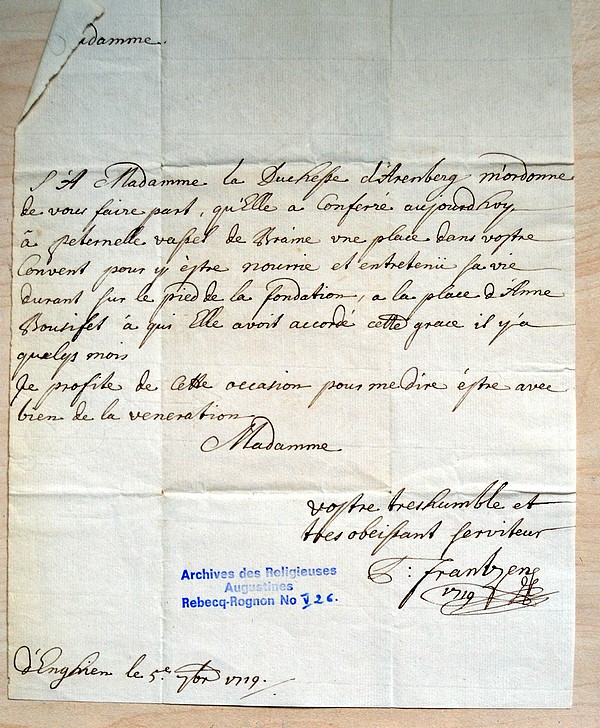 Madamme.
S'A Madamme la Duchesse d'Arenberg m'ordonne
de vous faire part, qu'Elle a Conferé aujourd'huy
à peternelle vassel de Braine vne place dans vostre
Convent pour y èstre nourrie et entretenüe sa vie
durant sur le pied de la fondation, a la place d'Anne
Bousifet à qui Elle avoit accordé cette grace il y'a
quelqs mois
Je profite de cette occasion pour me dire éstre avec
bien de la veneration
Madamme
vostre treshumble et
tres obeissant serviteur
frantzens
1719
Archives des Religieuses
Augustines
Rebecq-Rognon No V 26.
d'Enghien le 5.e 7br 1719.